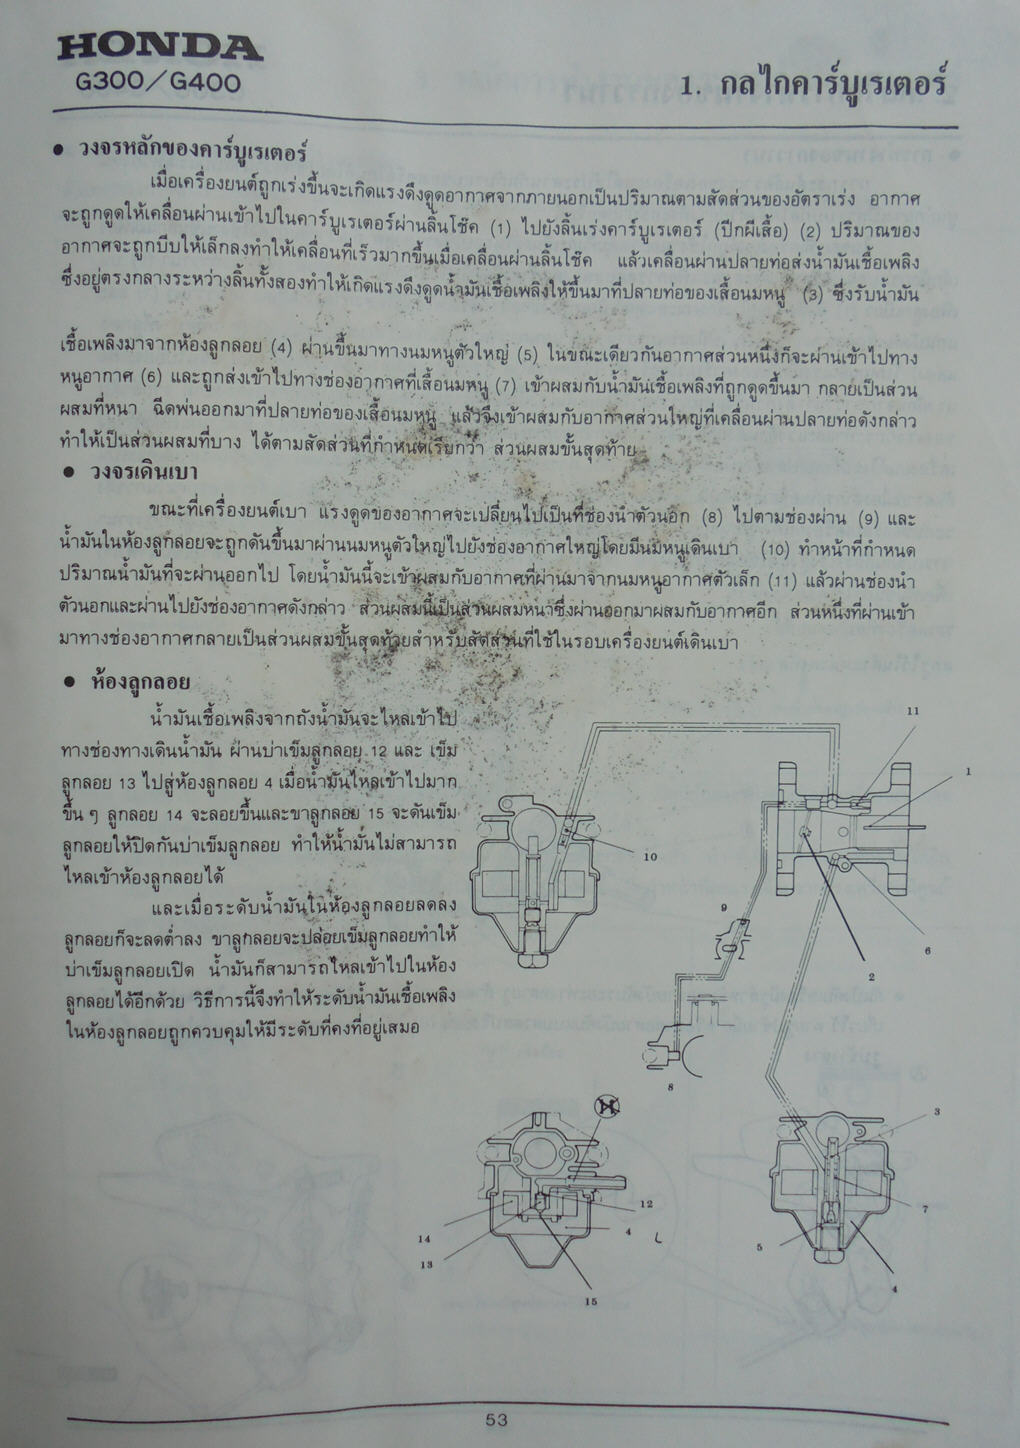 HONDA
G300/G400
1. กลไกคาร์บูเรเตอร์
● วงจรหลักของคาร์บูเรเตอร์
เมื่อเครื่องยนต์ถูกเร่งขึ้นจะเกิดแรงดึงดูดอากาศจากภายนอกเป็นปริมาณตามสัดส่วนของอัตราเร่ง อากาศ
จะถูกดูดให้เคลื่อนผ่านเข้าไปในคาร์บูเรเตอร์ผ่านลิ้นโช๊ค (1) ไปยังลิ้นเร่งคาร์บูเรเตอร์ (ปีกผีเสื้อ) (2) ปริมาณของ
อากาศจะถูกบีบให้เล็กลงทำให้เคลื่อนที่เร็วมากขึ้นเมื่อเคลื่อนผ่านลิ้นโช๊ค แล้วเคลื่อนผ่านปลายท่อส่งน้ำมันเชื้อเพลิง
ซึ่งอยู่ตรงกลางระหว่างลิ้นทั้งสองทำให้เกิดแรงดึงดูดน้ำมันเชื้อเพลิงให้ขึ้นมาที่ปลายท่อของเสื้อนมหนู (3) ซึ่งรับน้ำมัน
เชื้อเพลิงมาจากห้องลูกลอย (4) ผ่านขึ้นมาทางนมหนูตัวใหญ่ (5) ในขณะเดียวกันอากาศส่วนหนึ่งก็จะผ่านเข้าไปทาง
หนูอากาศ (6) และถูกส่งเข้าไปทางช่องอากาศที่เสื้อนมหนู (7) เข้าผสมกับน้ำมันเชื้อเพลิงที่ถูกดูดขึ้นมา กลายเป็นส่วน
ผสมที่หนา ฉีดพ่นออกมาที่ปลายท่อของเสื้อนมหนู แล้วจึงเข้าผสมกับอากาศส่วนใหญ่ที่เคลื่อนผ่านปลายท่อดังกล่าว
ทำให้เป็นส่วนผสมที่บาง ได้ตามสัดส่วนที่กำหนดเรียกว่า ส่วนผสมขั้นสุดท้าย
● วงจรเดินเบา
ขณะที่เครื่องยนต์เบา แรงดูดของอากาศจะเปลี่ยนไปเป็นที่ช่องนำตัวนอก (8) ไปตามช่องผ่าน (9) และ
น้ำมันในห้องลูกลอยจะถูกดันขึ้นมาผ่านนมหนูตัวใหญ่ไปยังช่องอากาศใหญ่โดยมีนมหนูเดินเบา (10) ทำหน้าที่กำหนด
ปริมาณน้ำมันที่จะผ่านออกไป โดยน้ำมันนี้จะเข้าผสมกับอากาศที่ผ่านมาจากนมหนูอากาศตัวเล็ก (11) แล้วผ่านช่องนำ
ตัวนอกและผ่านไปยังช่องอากาศดังกล่าว ส่วนผสมนี้เป็นส่วนผสมหนาซึ่งผ่านออกมาผสมกับอากาศอีก ส่วนหนึ่งที่ผ่านเข้า
มาทางช่องอากาศกลายเป็นส่วนผสมขั้นสุดท้ายสำหรับสัดส่วนที่ใช้ในรอบเครื่องยนต์เดินเบา
● ห้องลูกลอย
น้ำมันเชื้อเพลิงจากถังน้ำมันจะไหลเข้าไป
ทางช่องทางเดินน้ำมัน ผ่านบ่าเข็มลูกลอย 12 และ เข็ม
ลูกลอย 13 ไปสู่ห้องลูกลอย 4 เมื่อน้ำมันไหลเข้าไปมาก
ขึ้น ๆ ลูกลอย 14 จะลอยขึ้นและขาลูกลอย 15 จะดันเข็ม
ลูกลอยให้ปิดกันบ่าเข็มลูกลอย ทำให้น้ำมันไม่สามารถ
ไหลเข้าห้องลูกลอยได้
และเมื่อระดับน้ำมันในห้องลูกลอยลดลง
ลูกลอยก็จะลดต่ำลง ขาลูกลอยจะปล่อยเข็มลูกลอยทำให้
บ่าเข็มลูกลอยเปิด น้ำมันก็สามารถไหลเข้าไปในห้อง
ลูกลอยได้อีกด้วย วิธีการนี้จึงทำให้ระดับน้ำมันเชื้อเพลิง
ในห้องลูกลอยถูกควบคุมให้มีระดับที่คงที่อยู่เสมอ
11
1
10
9
6
2
8
3
12
7
14
4
5
13
4
15
53